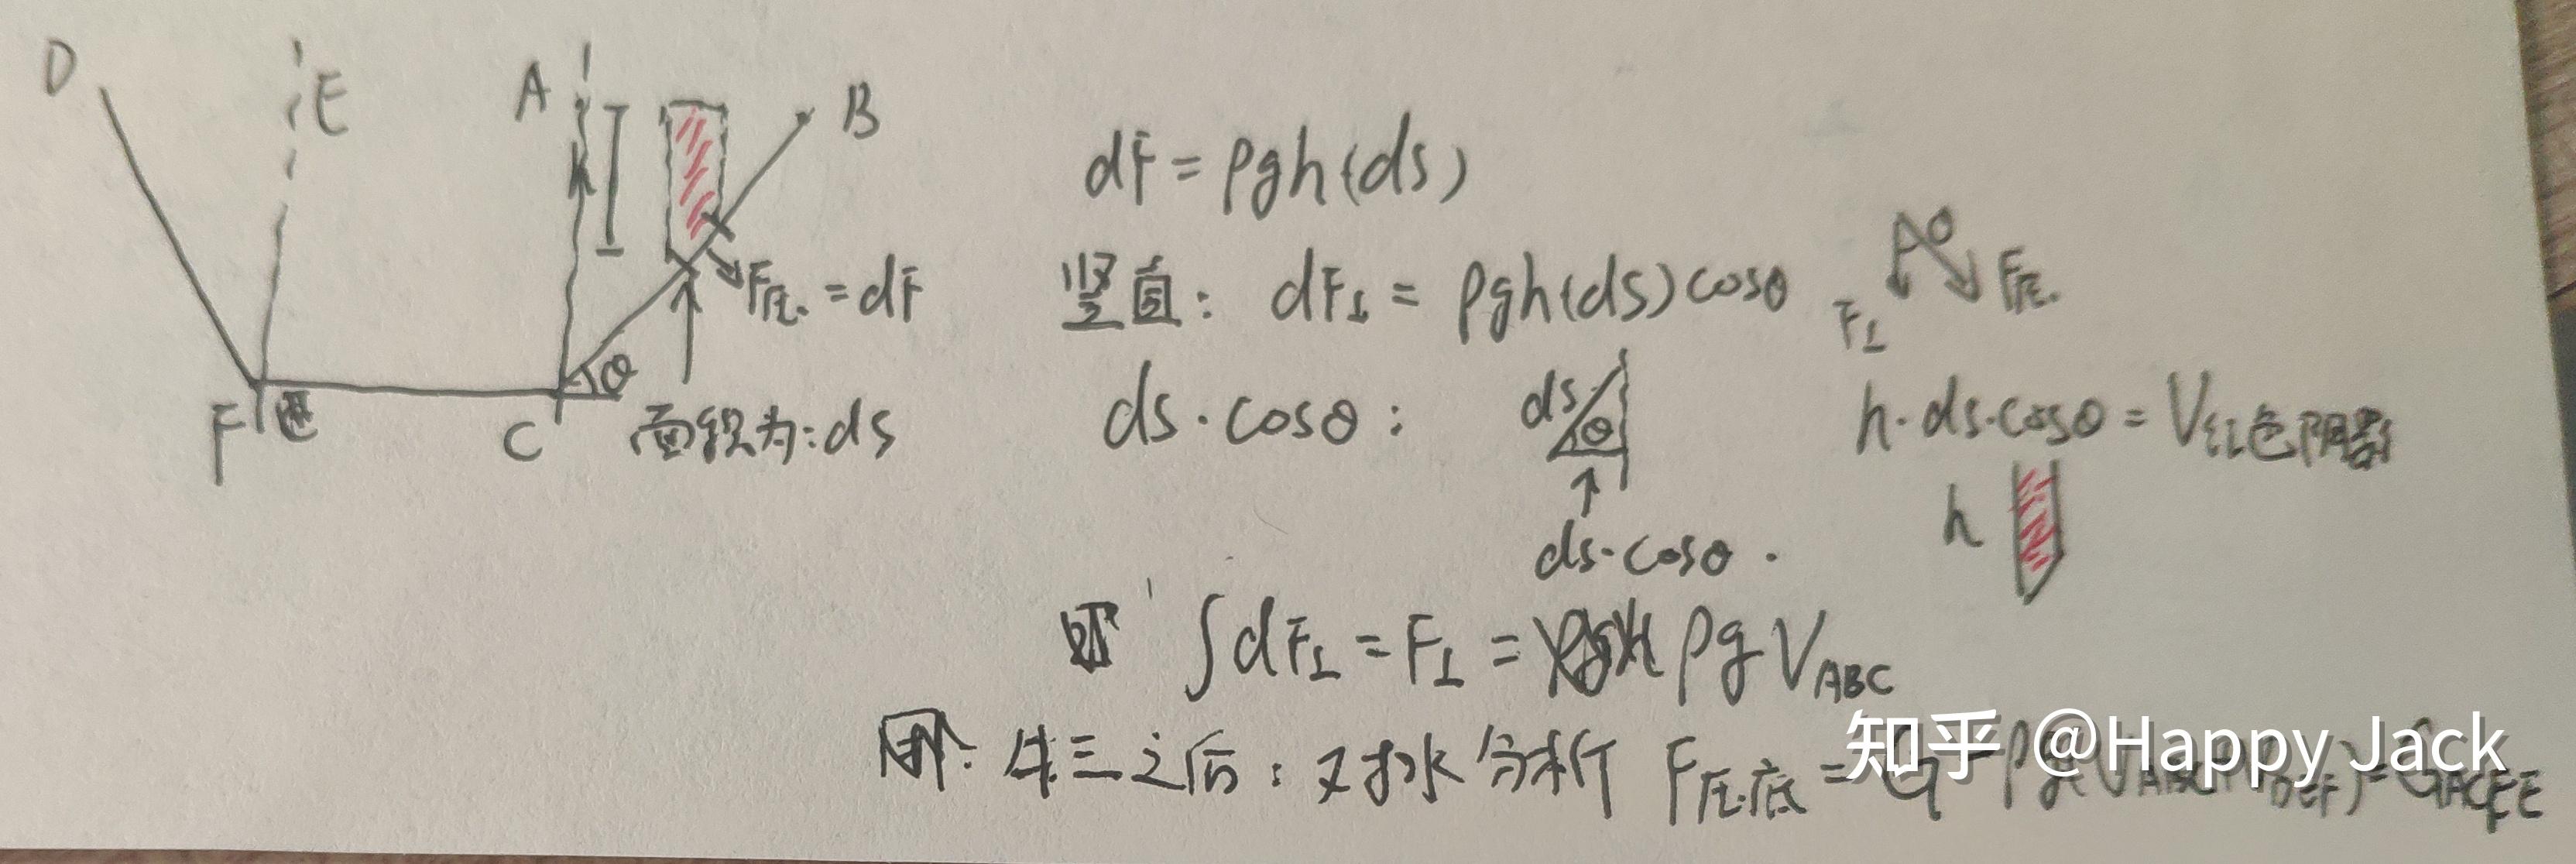 D
E
A
B
h
F
C
θ
F压 = dF
面积为:ds
dF = ρgh(ds)
竖直: dF⊥ = ρgh(ds)cosθ
θ
F⊥
F压
ds·cosθ:
ds
θ
ds·cosθ
h·ds·cosθ = V红色阴影
h
∫dF⊥ = F⊥ = ρgV_ABC
牛三之后: 又对水分析 F压底 = G - ρg(V_ABC+V_DEF) = G_ACFE
知乎 @Happy Jack